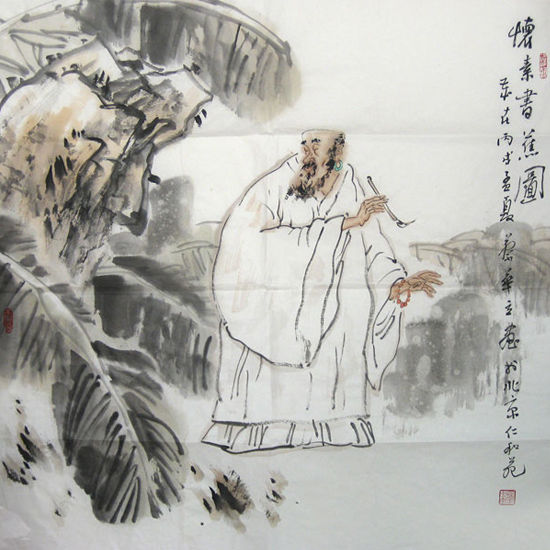 懷素書蕉圖
歲在丙戌孟夏黎華立畫於北京仁和苑